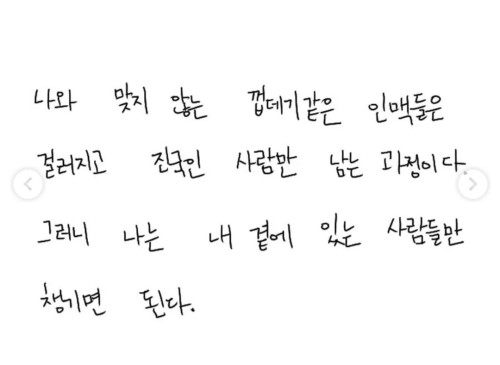 나와 맞지 않는 껍데기같은 인맥들은
걸러지고 진국인 사람만 남는 과정이다.
그러니 나는 내 곁에 있는 사람들만
챙기면 된다.